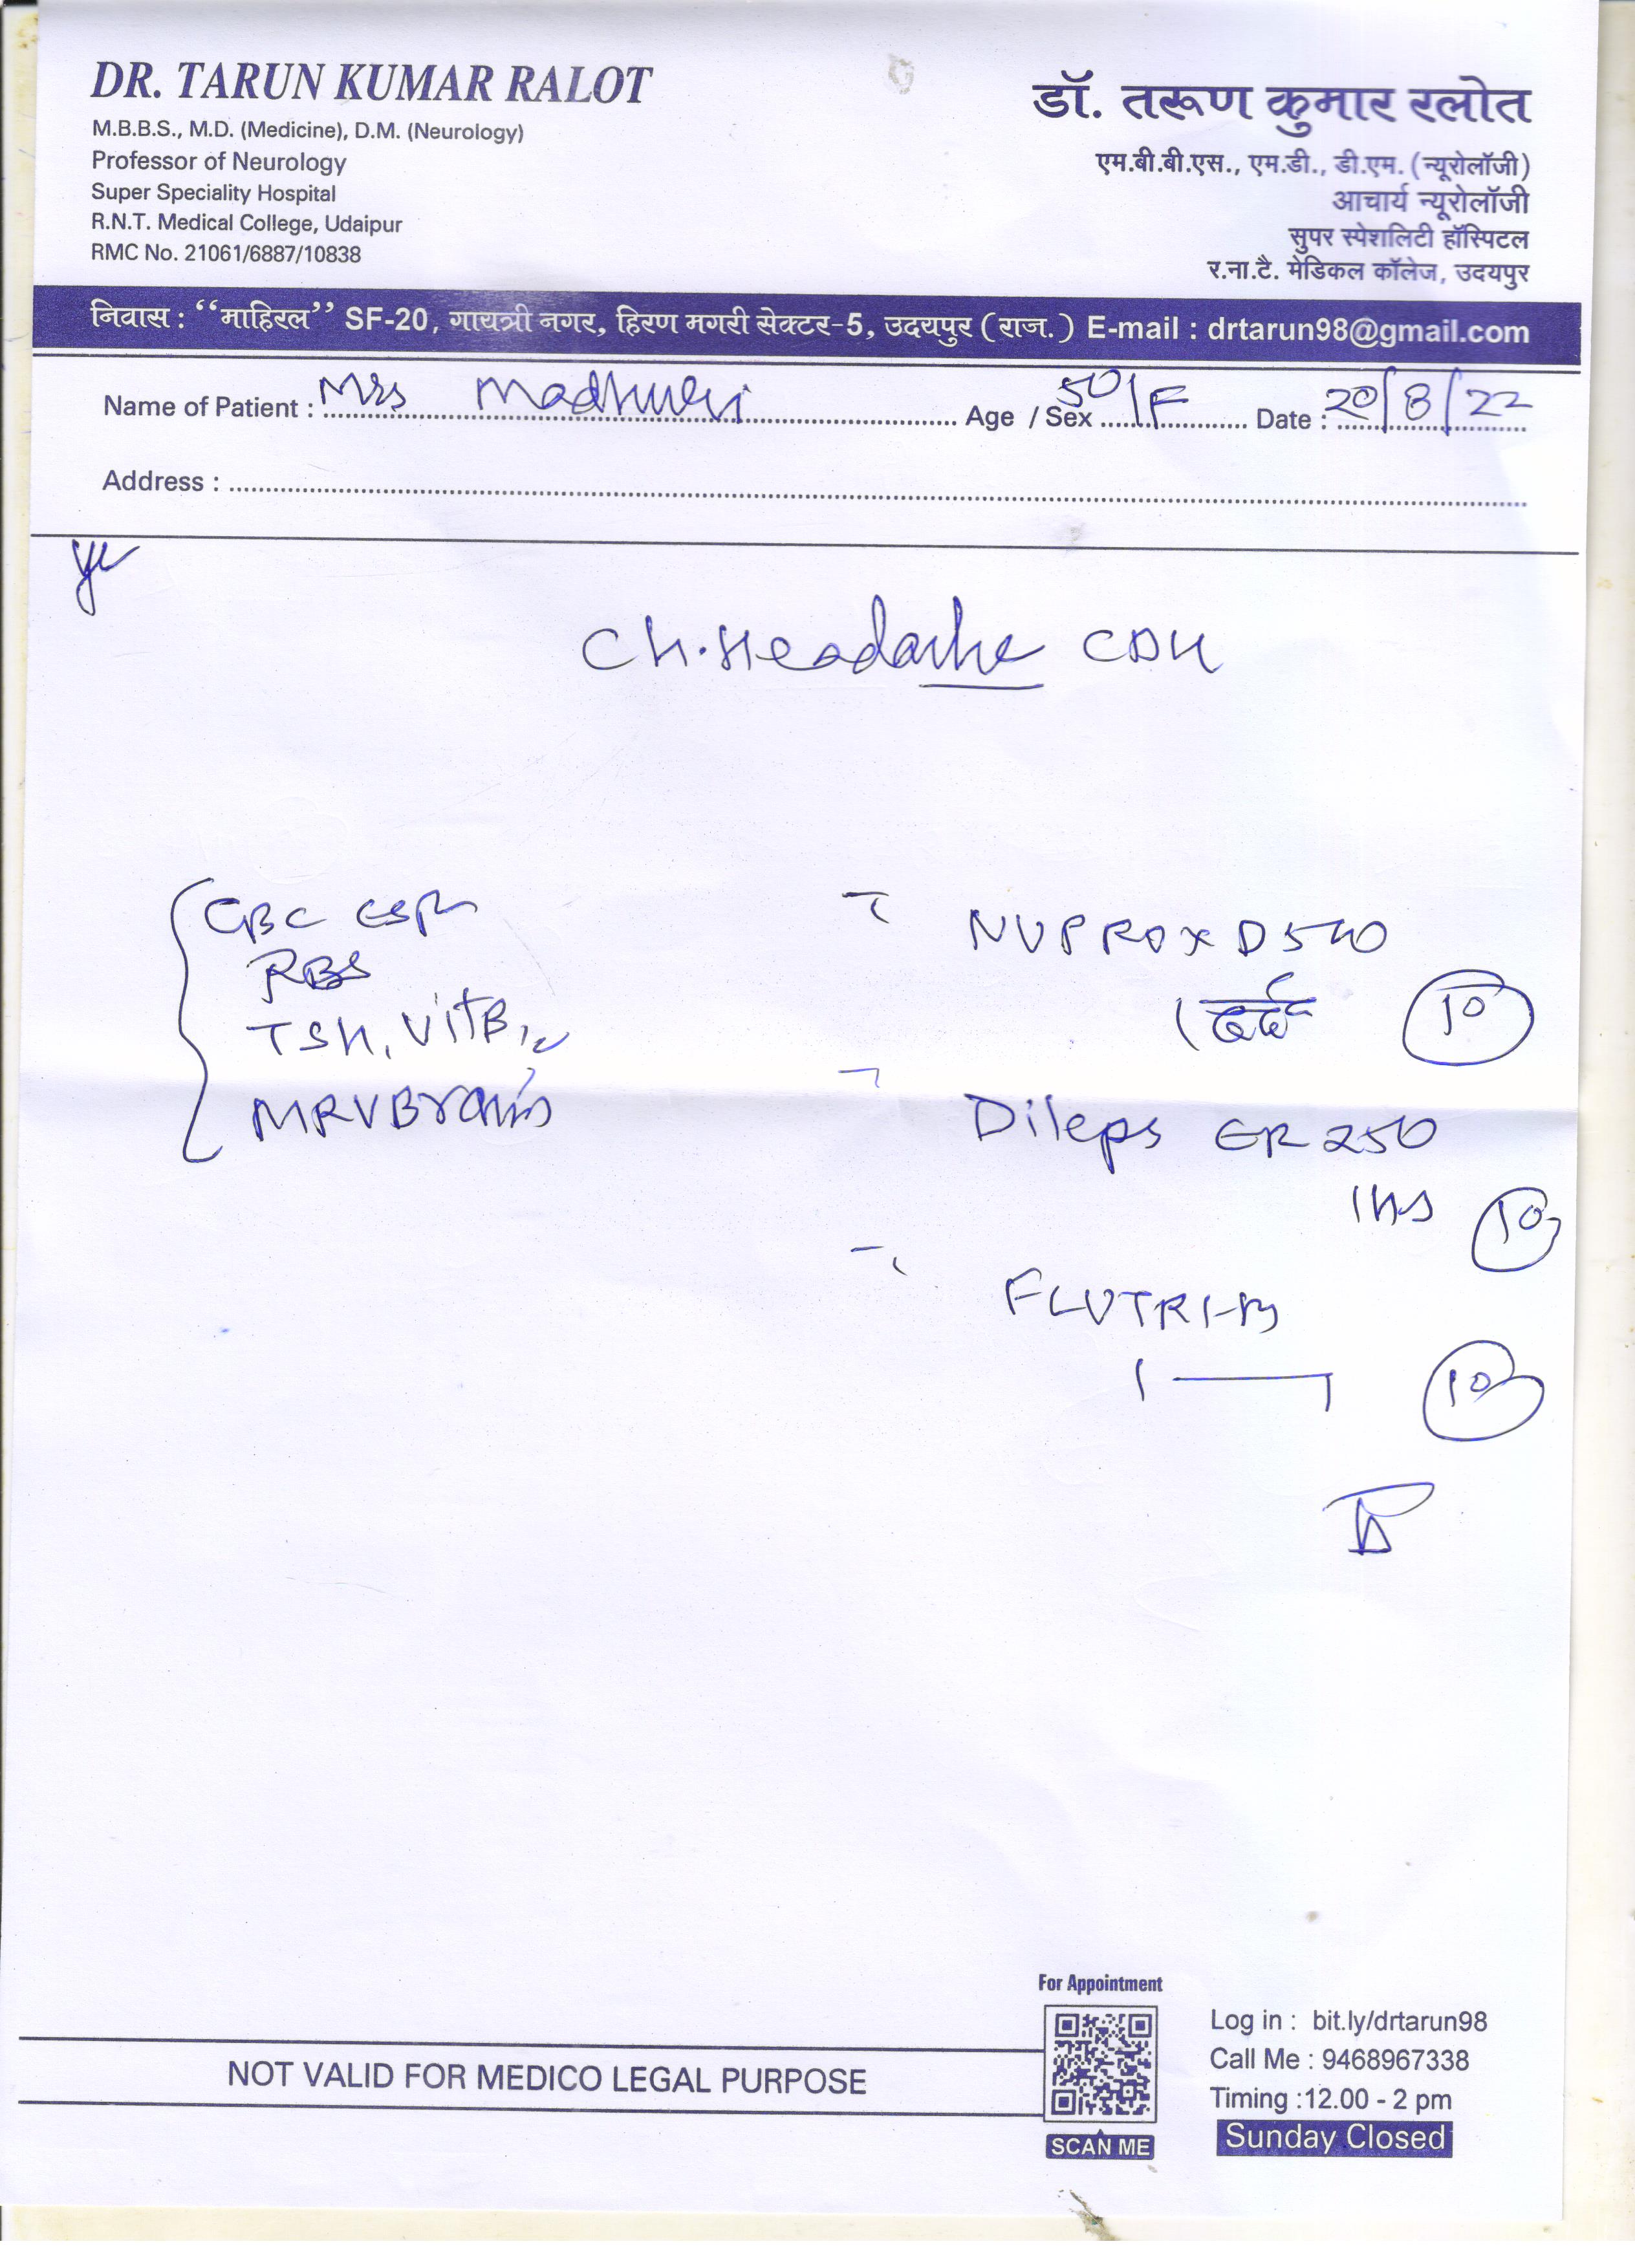 DR. TARUN KUMAR RALOT
M.B.B.S., M.D. (Medicine), D.M. (Neurology)
Professor of Neurology
Super Speciality Hospital
R.N.T. Medical College, Udaipur
RMC No. 21061/6887/10838
डॉ. तरूण कुमार रलोत
एम.बी.बी.एस., एम.डी., डी.एम. (न्यूरोलॉजी)
आचार्य न्यूरोलॉजी
सुपर स्पेशलिटी हॉस्पिटल
र.ना.टै. मेडिकल कॉलेज, उदयपुर
निवास : “माहिरल” SF-20, गायत्री नगर, हिरण मगरी सेक्टर-5, उदयपुर (राज.) E-mail : drtarun98@gmail.com
Name of Patient : Mrs Madhuri Age / Sex 50/F Date : 20/8/22
Address :
Ch. Headache CDH
CBC ESR
RBS
TSH, VitB12
MRV Brain
NUPROX D 500
1 दर्द 10
Dileps ER 250
1 hs 10
FLUTRI-M
1 — 1 10
For Appointment
SCAN ME
Log in : bit.ly/drtarun98
Call Me : 9468967338
Timing :12.00 - 2 pm
Sunday Closed
NOT VALID FOR MEDICO LEGAL PURPOSE